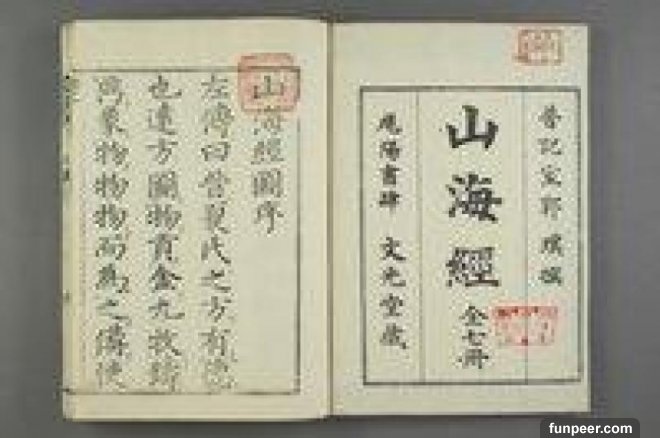 晉記室郭璞撰
山海經
全七冊
陽書肆 文光堂蔵
山海經圖序
左傳曰昔夏氏之方有德
也遠方圖物貢金九牧鑄
象物物物而為之備使
funpeer.com